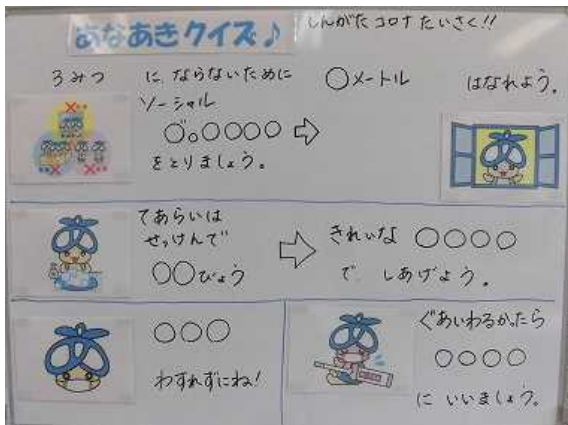 あなあきクイズ♪
しんがたコロナたいさく!!
3みつ
に、ならないために
ソーシャル
○゛。○○○○⇨
をとりましょう。
○メートル
はなれよう。
てあらいは
せっけんで
○○びょう
⇨
きれいな ○○○○
で、しあげよう。
○○○
わすれずにね!
ぐあいわるかったら
○○○○
に いいましょう。